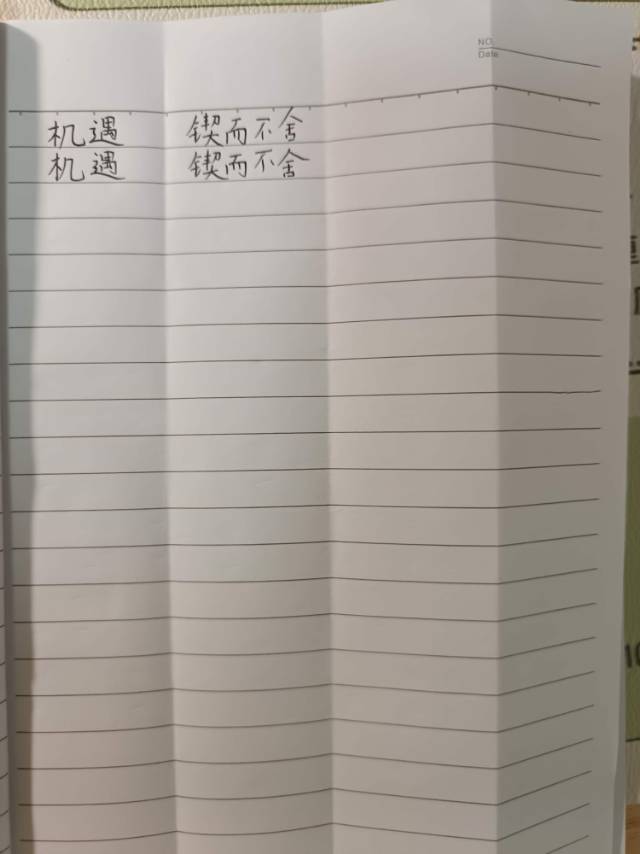 NO.
Date
机遇 锲而不舍
机遇 锲而不舍
10